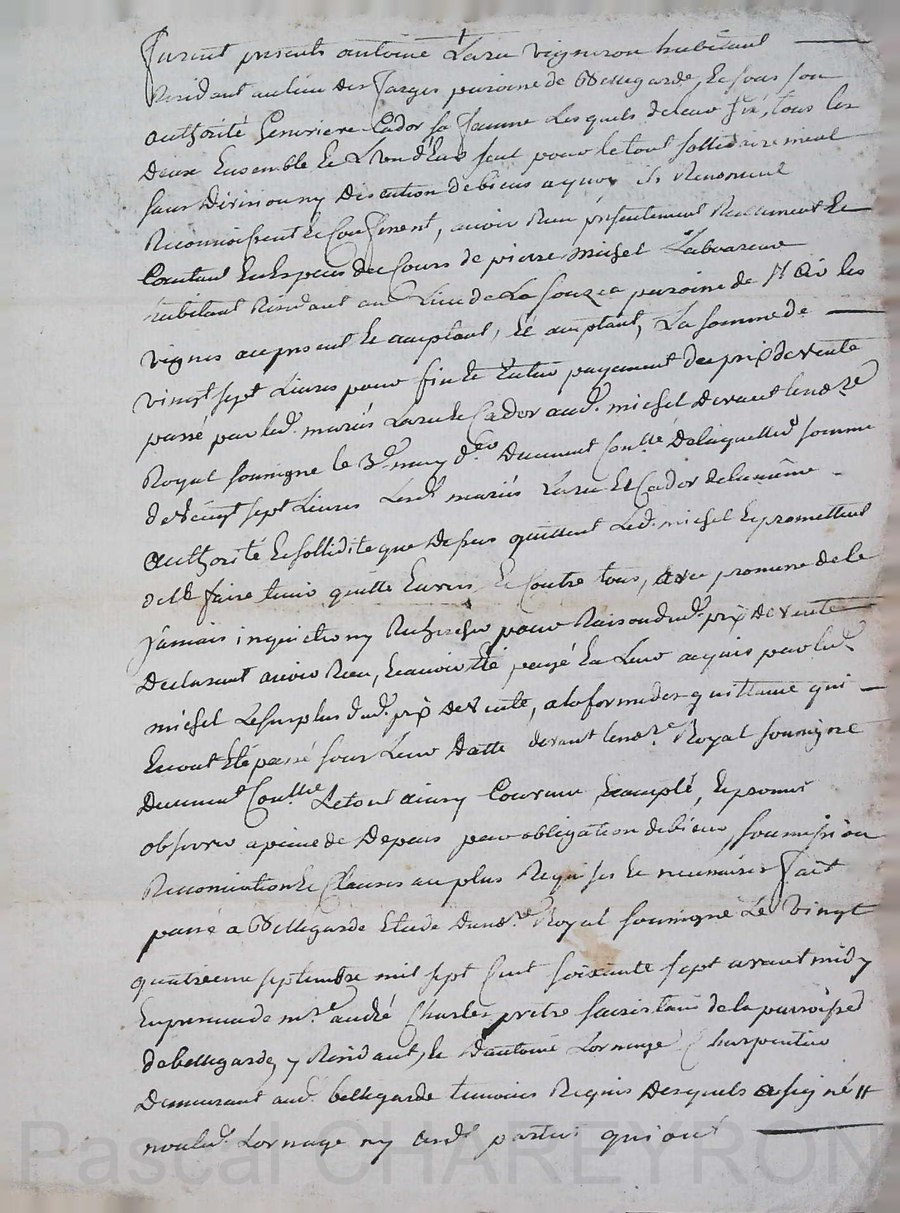 furent presents antoine Laru vigneron habitant
Residant au lieu des farges paroisse de Bellegarde, Et sous son
authorité Genevieve Cador sa femme Lesquels de leur gré, tous les
deux Ensemble Et L'un d'Eux seul pour le tout sollidairement
sans division ny discution de biens a quoy ils Renoncent
Reconnoissent Et Confessent, avoir Reçu présentement Reellement Et
Contant En Especes du Cours de pierre michel Laboureur
habitant Residant au Lieu de La paroisse de St les
vignes acceptant, La somme de
vingt sept Livres pour fin Et Entier payement du prix de vente
passé par led. mariés Laru Et Cador aud. michel devant Le nore
Royal soussigné le 3e may duement Conllé De laquelle somme
de vingt sept Livres Lesd. mariés Laru Et Cador de la même
authorité Et sollidité que dessus quittent Led. michel Et promettent
de le faire tenir quitte Envers Et Contre tous, avec promesse de le
jamais inquietter ny Rechercher pour Raison dud. prix de vente
Declarant avoir Reçu, Et avoir Eté payé En Leur acquis par led.
michel Le surplus dud. prix de vente, a la forme des quittance qui
En ont Eté passé sous Leur datte devant Le nore Royal soussigné
Duement Conllée Le tout ainsy Convenu accepté, Et promis
observer a peine de Depens par obligation de biens, soumission
Renonciation Et Clauses au plus Requises Et necessaires fait
passé a Bellegarde Etude dud nore Royal soussigné Le vingt
quatrieme septembre mil sept Cent soixante sept avant midy
En presence de mre andré Charles pretre sacristain de la parroisse
de bellegarde y Residant, Et d'antoine Lornage Charpentier
Demeurant aud. bellegarde temoins Requis desquels a signé
non led. Lornage ny lesd. parties qui ont
Pascal CHAREYRON